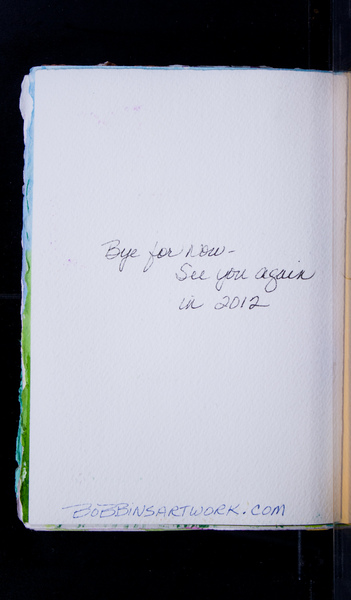 Bye for now-
See you again
in 2012
BOBBINSARTWORK.COM